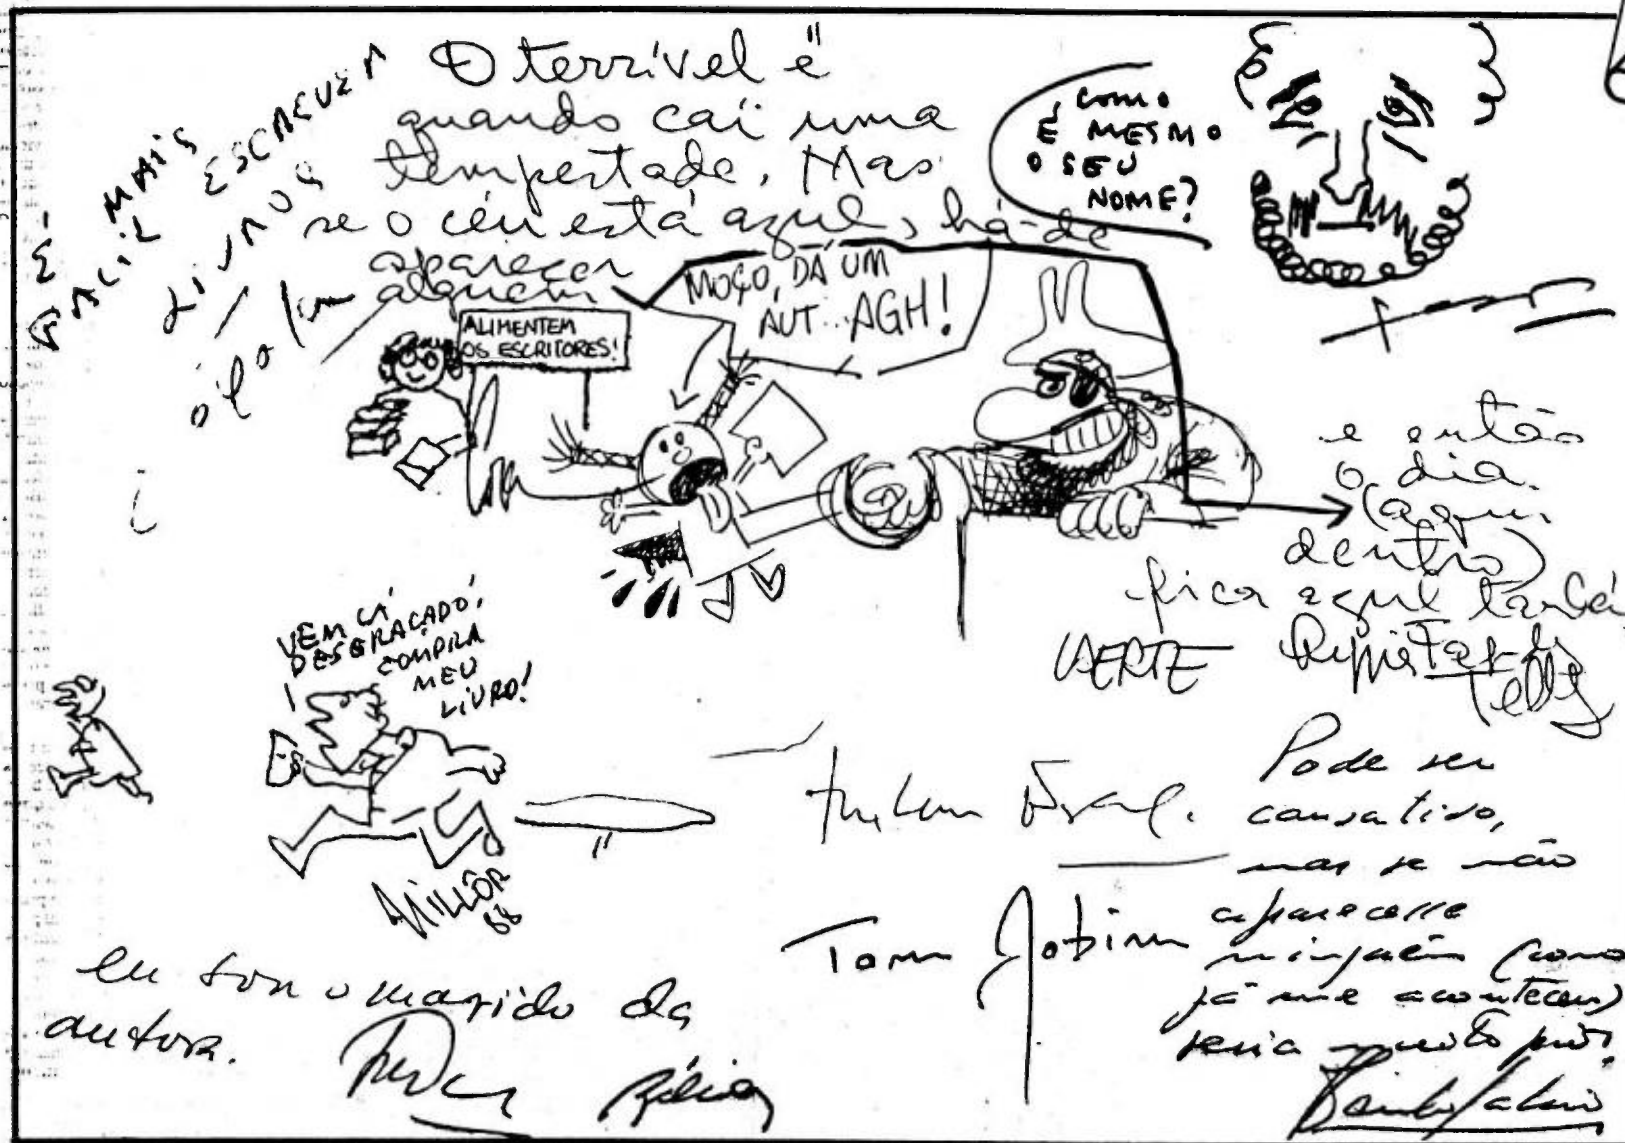 É MAIS
FACIL ESCREVER
LIVROS
O terrível é
quando cai uma
tempestade. Mas
se o céu está azul, há-de
aparecer
alguém
COMO
É MESMO
O SEU
NOME?
MOÇO, DÁ UM
AUT...AGH!
ALIMENTEM
OS ESCRITORES!
e então
o dia
(aqui
dentro)
fica azul também
LAERTE
Lygia Fagundes
Telles
VEM CÁ
DESGRAÇADO,
COMPRA
MEU
LIVRO!
MILLÔR
88
Pode ser
cansativo,
mas se não
aparecesse
ninguém (como
já me aconteceu)
seria muito pior.
Tom Jobim
eu sou o marido da
autora.